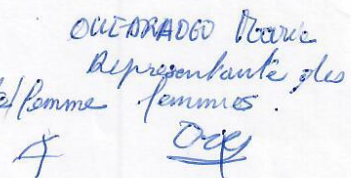 OUEDRAOGO Marie
Représentante des
femmes.